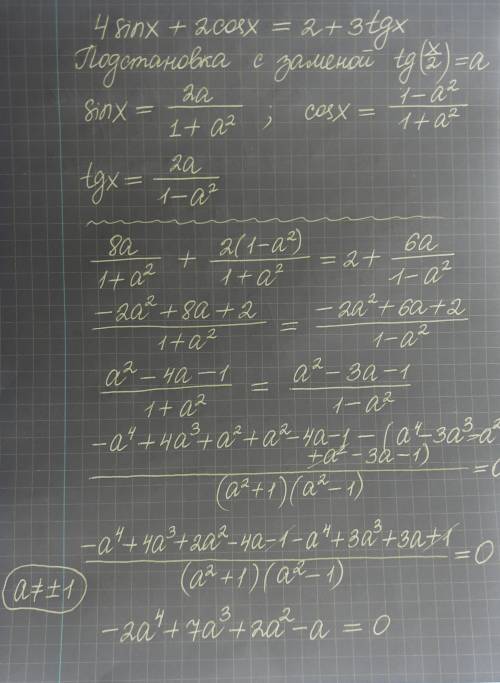 4sinx + 2cosx = 2 + 3tgx
Подстановка с заменой tg(x/2)=a
sinx = 2a/(1+a²) ; cosx = (1-a²)/(1+a²)
tgx = 2a/(1-a²)
8a/(1+a²) + 2(1-a²)/(1+a²) = 2 + 6a/(1-a²)
(-2a²+8a+2)/(1+a²) = (-2a²+6a+2)/(1-a²)
(a²-4a-1)/(1+a²) = (a²-3a-1)/(1-a²)
-a⁴+4a³+a²+a²-4a-1-(a⁴-3a³-a²
+a²-3a-1)/(a²+1)(a²-1) = 0
(-a⁴+4a³+2a²-4a-1-a⁴+3a³+3a+1)/(a²+1)(a²-1) = 0
a≠±1
-2a⁴+7a³+2a²-a = 0